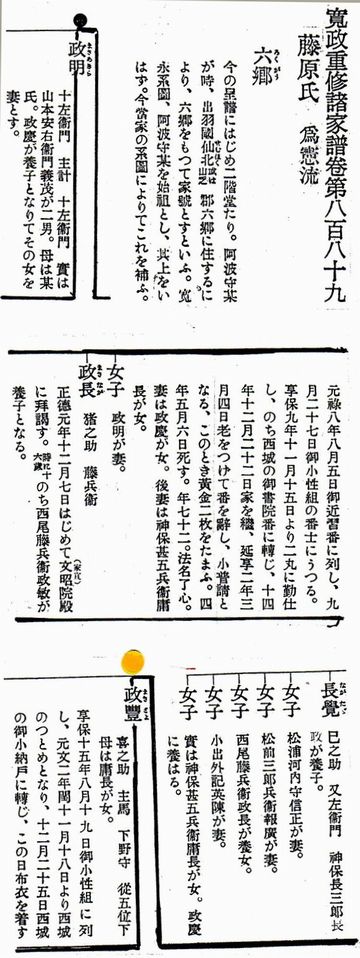 寬政重修諸家譜卷第八百八十九
藤原氏 爲憲流
六郷
今の呈譜にはじめ二階堂たり。阿波守某
が時、出羽國仙北郡六郷に住するに
より、六郷をもつて家號とすといふ。寛
永系圖、阿波守某を始祖とし、其上をい
はず。今當家の系圖によりてこれを補ふ。
政明
十左衞門 主計 十左衞門 實は
山本安右衞門義茂が二男。母は某
氏。政慶が養子となりてその女を
妻とす。
元祿八年八月五日御近習番に列し、九
月二十七日御小性組の番士にうつる。
享保九年十一月十五日より二丸に勤仕
し、のち西城の御書院番に轉じ、十四
年十二月二十二日家を繼、延享二年三
月四日老をつげて番を辭し、小普請と
なる、このとき黃金二枚をたまふ。四
年五月六日死す。年七十二。法名了心。
妻は政慶が女。後妻は神保甚五兵衞庸
長が女。
女子 政明が妻。
政長 猪之助 藤兵衞
正德元年十二月七日はじめて文昭院殿(家宣)
に拜謁す。時に十六歲のち西尾藤兵衞政敏が
養子となる。
長覺 巳之助 又左衞門 神保長三郎長
政が養子。
女子 松浦河內守信正が妻。
女子 松前三郎兵衞報廣が妻。
女子 西尾藤兵衞政長が養女。
女子 小出外記英陳が妻。
女子 實は神保甚五兵衞庸長が女。政慶
に養はる。
政豐
喜之助 主馬 下野守 從五位下
母は庸長が女。
享保十五年八月十九日御小性組に列
し、元文二年閏十一月十八日より西城
のつとめとなり、十二月二十五日西城
の御小納戶に轉じ、この日布衣を着す